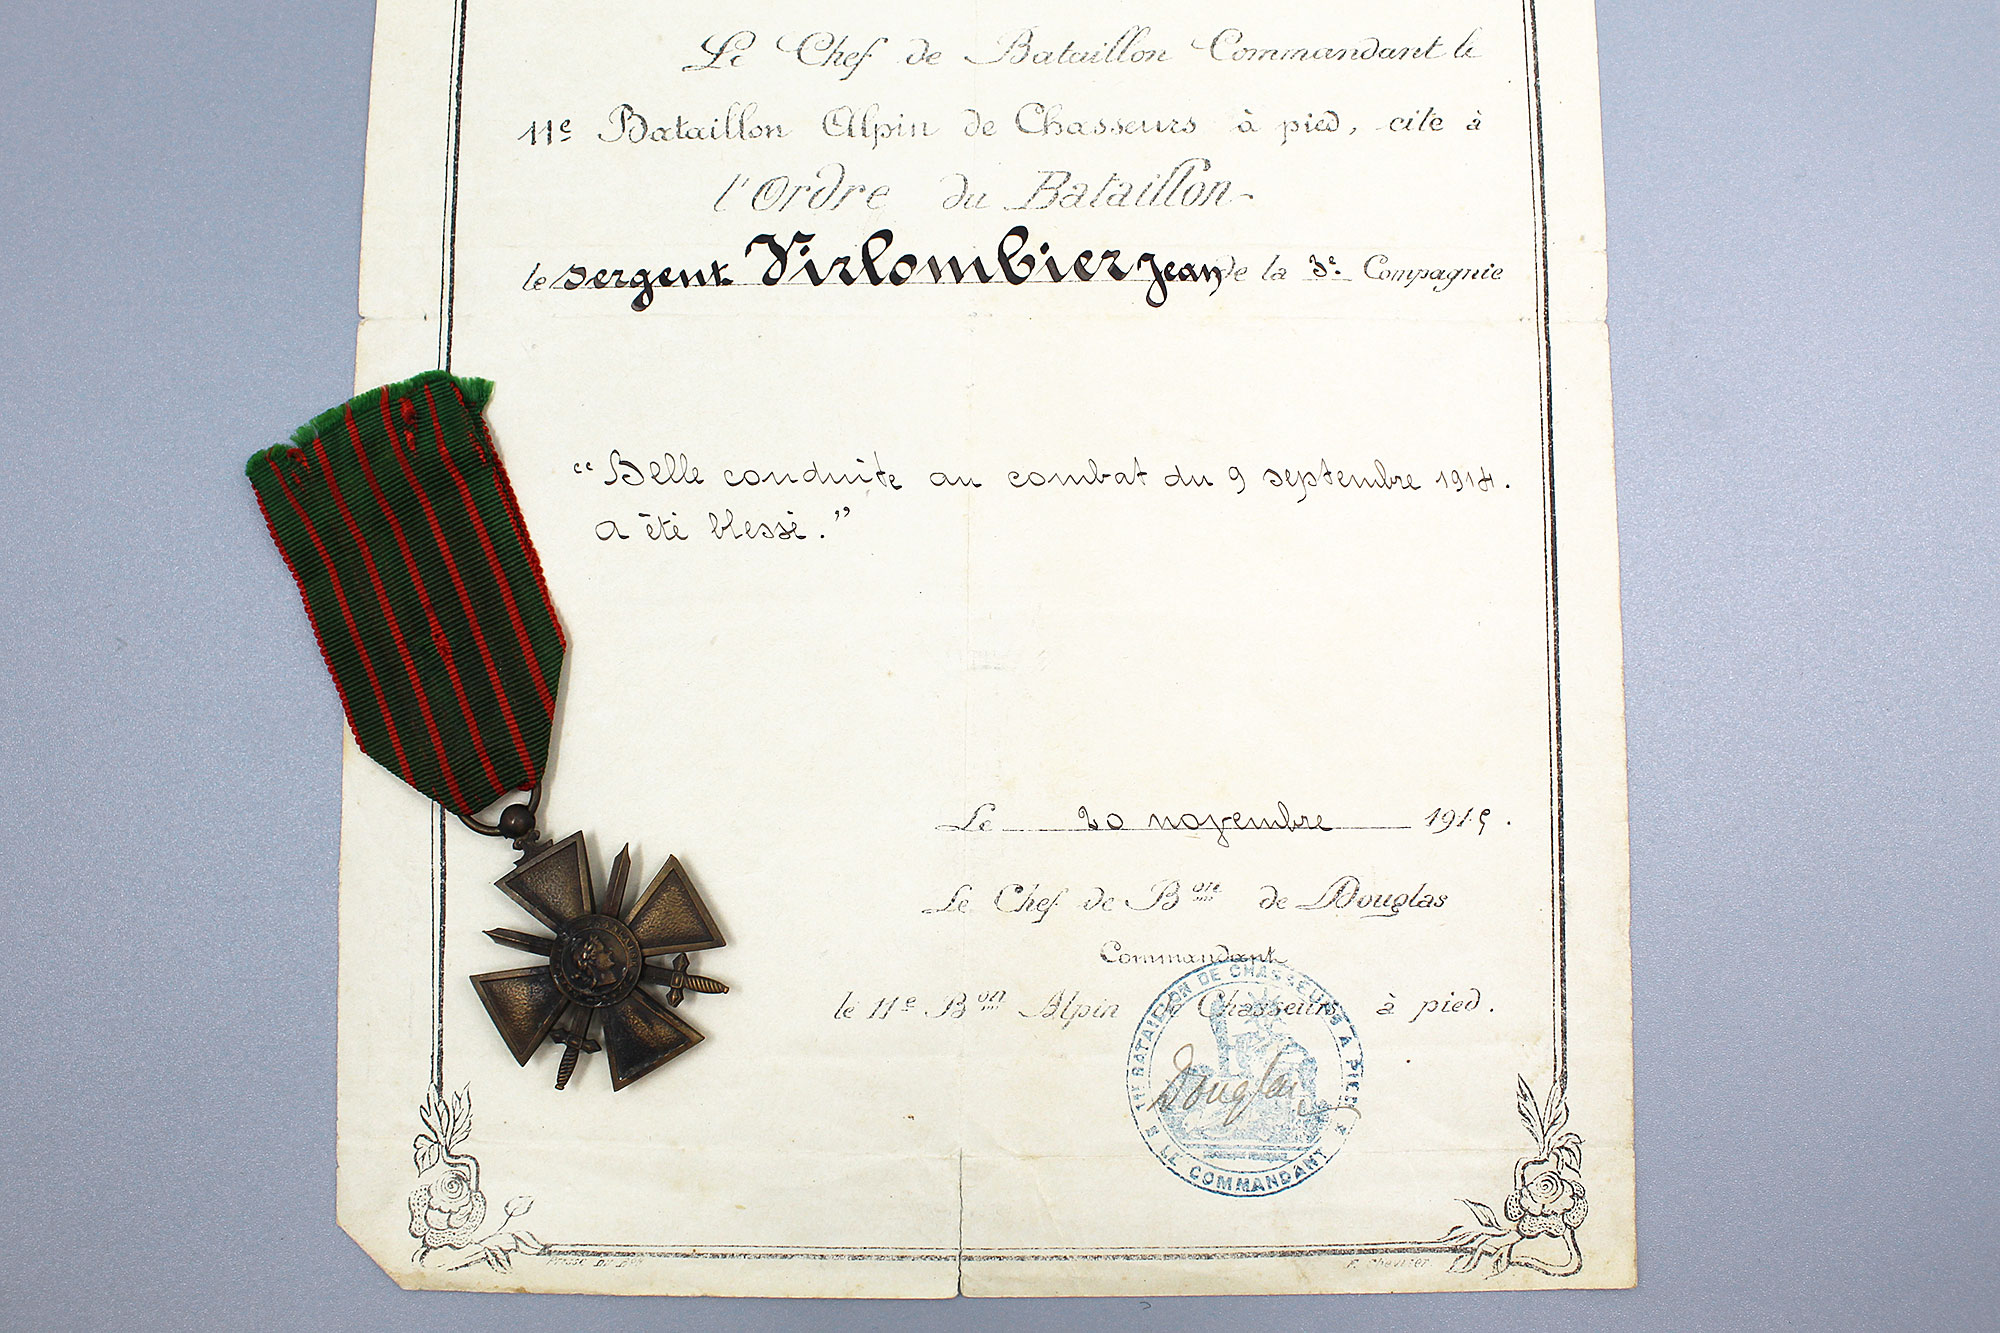 Le Chef de Bataillon Commandant le
11e Bataillon Alpin de Chasseurs à pied, cite à
l'Ordre du Bataillon
le sergent Virlombier Jean de la 3e Compagnie
"Belle conduite au combat du 9 septembre 1914.
a été blessé."
Le 20 novembre 1915.
Le Chef de Bon de Douglas
Commandant
le 11e Bon Alpin de Chasseurs à pied.
11E BATAILLON DE CHASSEURS A PIED
Douglas
LE COMMANDANT
F. Chevrier